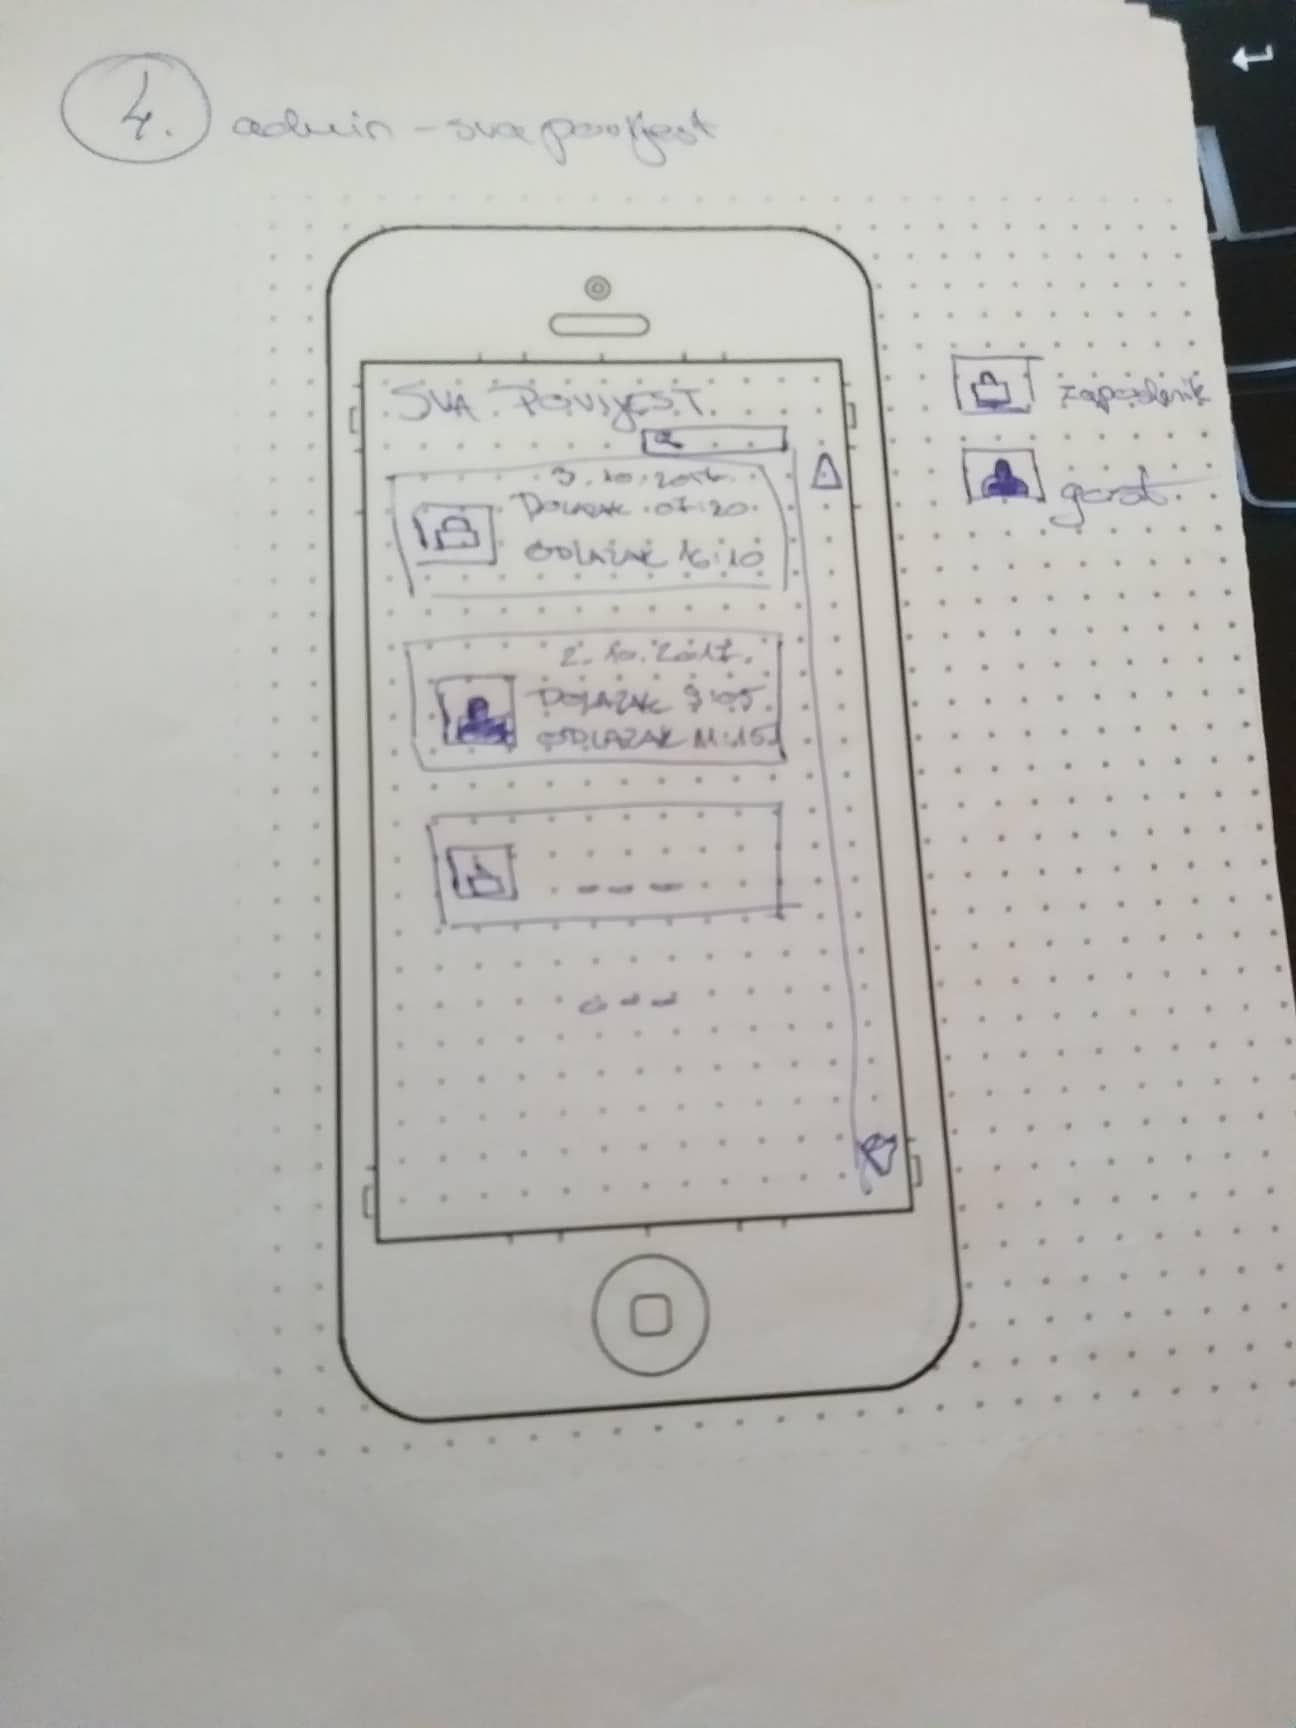 4. admin - sva povijest
SVA POVIJEST
DOLAZAK 07:20
ODLAZAK 16:10
2. 10. 2017.
DOLAZAK 9:05
ODLAZAK 11:15
zaposlenik
gost